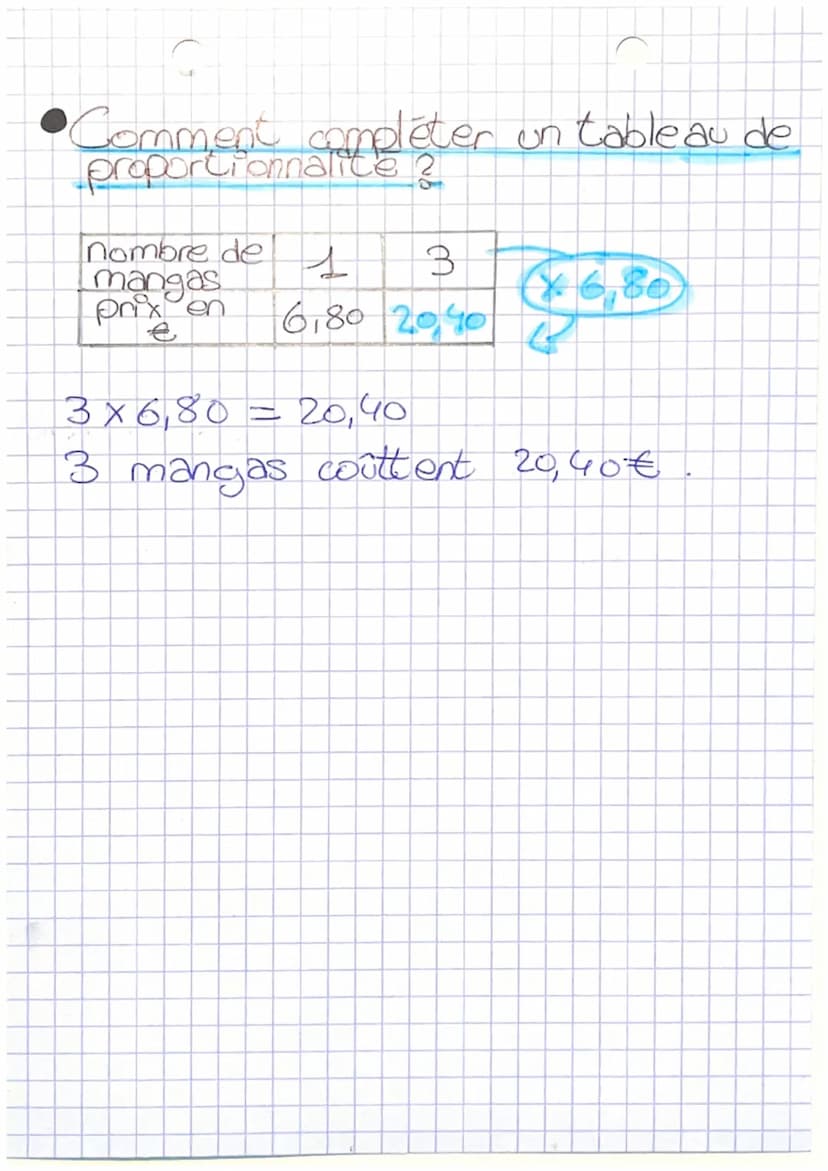 • Comment compléter un tableau de
proportionnalité ?
nombre de mangas 1 3
prix en € 6,80 20,40
x 6,80
3 x 6,80 = 20,40
3 mangas coûttent 20,40€ .